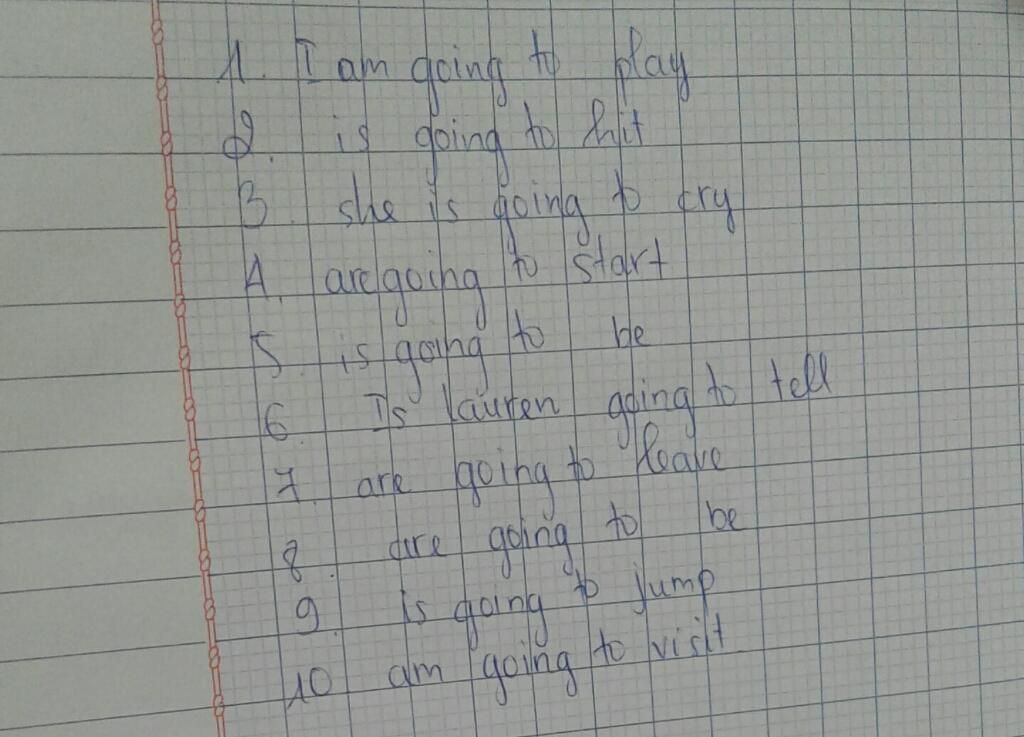 1. I am going to play
2. is going to hit
3. she is going to cry
4. are going to start
5. is going to be
6. Is lauren going to tell
7. are going to leave
8. are going to be
9. is going to jump
10 am going to visit